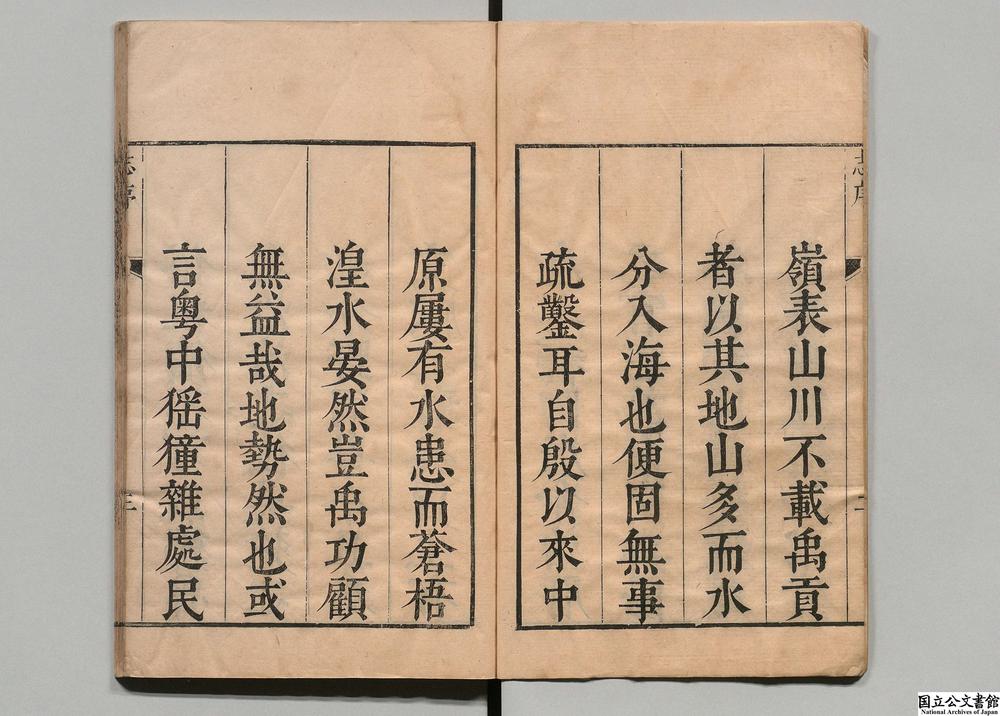 嶺表山川不載禹貢
者以其地山多而水
分入海也便固無事
疏鑿耳自殷以來中
原屢有水患而蒼梧
湟水晏然豈禹功顧
無益哉地勢然也或
言粵中猺獞雜處民
志序
二
志序
三
国立公文書館
National Archives of Japan